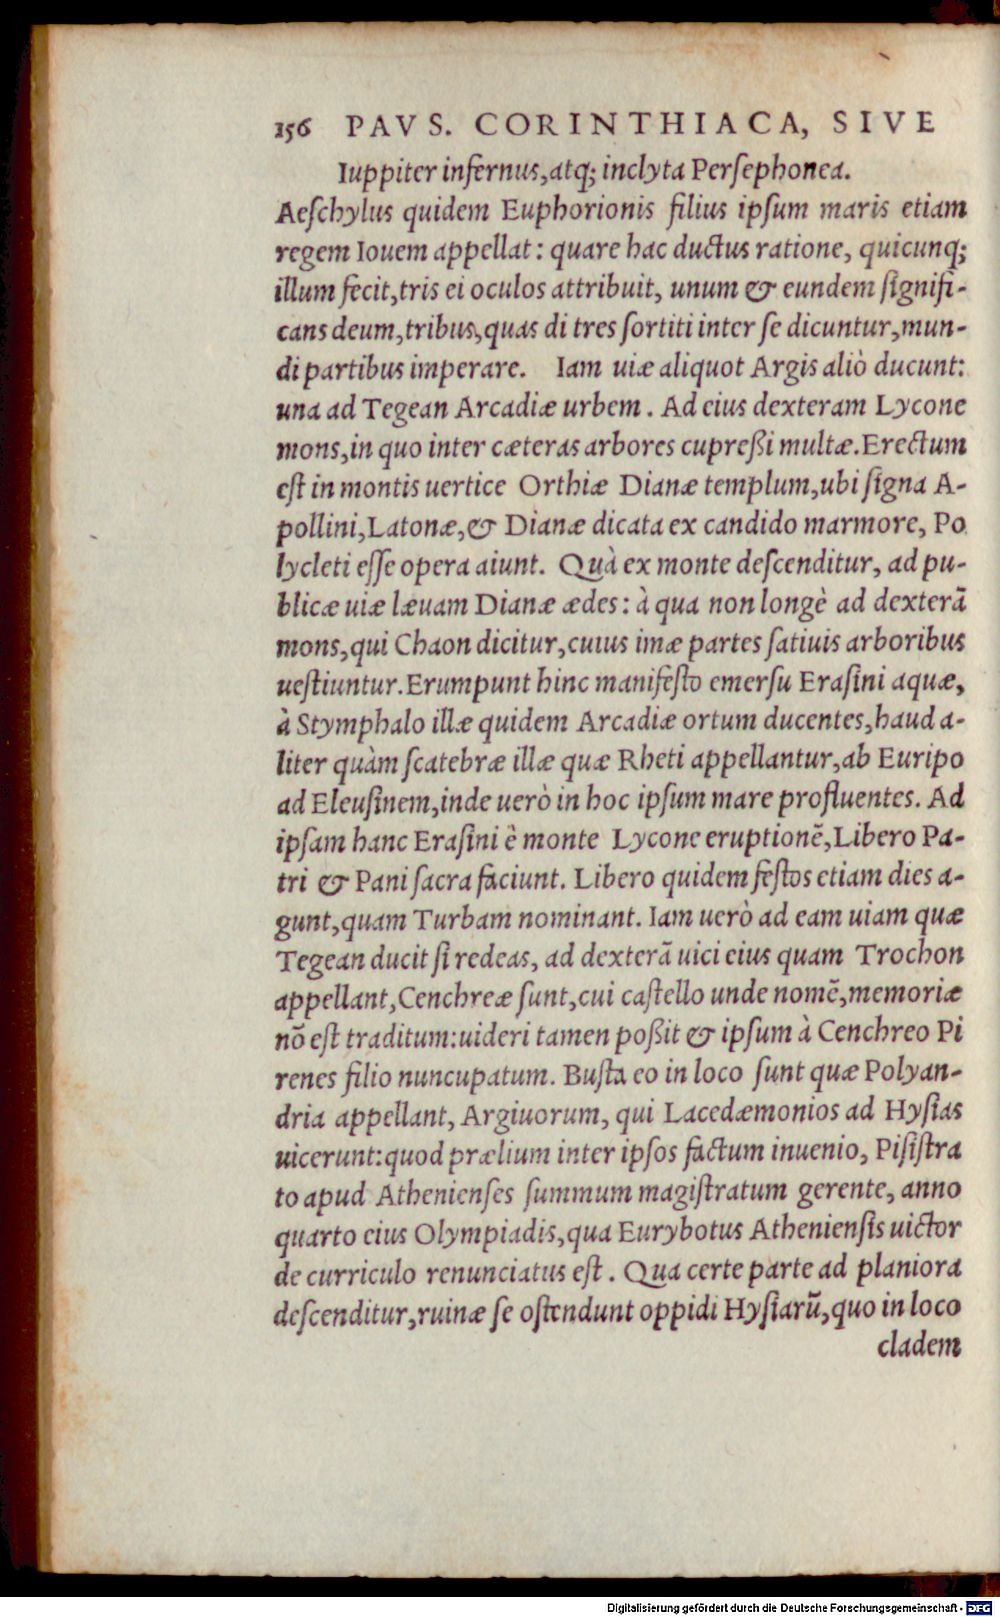 156 PAVS. CORINTHIACA, SIVE
Iuppiter infernus,atq; inclyta Persephonea.
Aeſchylus quidem Euphorionis filius ipſum maris etiam
regem Iouem appellat: quare hac ductus ratione, quicunq;
illum fecit,tris ei oculos attribuit, unum & eundem ſignifi-
cans deum,tribus,quas di tres ſortiti inter ſe dicuntur,mun-
di partibus imperare. Iam uiæ aliquot Argis aliò ducunt:
una ad Tegean Arcadiæ urbem. Ad eius dexteram Lycone
mons,in quo inter cæteras arbores cupreßi multæ.Erectum
eſt in montis uertice Orthiæ Dianæ templum,ubi ſigna A-
pollini,Latonæ,& Dianæ dicata ex candido marmore, Po
lycleti eſſe opera aiunt. Quà ex monte deſcenditur, ad pu-
blicæ uiæ læuam Dianæ ædes: à qua non longè ad dexterā
mons,qui Chaon dicitur,cuius imæ partes ſatiuis arboribus
ueſtiuntur.Erumpunt hinc manifeſto emerſu Eraſini aquæ,
à Stymphalo illæ quidem Arcadiæ ortum ducentes,haud a-
liter quàm ſcatebræ illæ quæ Rheti appellantur,ab Euripo
ad Eleuſinem,inde uerò in hoc ipſum mare profluentes. Ad
ipſam hanc Eraſini è monte Lycone eruptionē,Libero Pa-
tri & Pani ſacra faciunt. Libero quidem feſtos etiam dies a-
gunt,quam Turbam nominant. Iam uerò ad eam uiam quæ
Tegean ducit ſi redeas, ad dexterā uici eius quam Trochon
appellant,Cenchreæ ſunt,cui caſtello unde nomē,memoriæ
nō eſt traditum:uideri tamen poßit & ipſum à Cenchreo Pi
renes filio nuncupatum. Buſta eo in loco ſunt quæ Polyan-
dria appellant, Argiuorum, qui Lacedæmonios ad Hyſias
uicerunt:quod prælium inter ipſos factum inuenio, Piſiſtra
to apud Athenienſes ſummum magiſtratum gerente, anno
quarto eius Olympiadis,qua Eurybotus Athenienſis uictor
de curriculo renunciatus eſt. Qua certe parte ad planiora
deſcenditur,ruinæ ſe oſtendunt oppidi Hyſiarū,quo in loco
cladem
Digitalisierung gefördert durch die Deutsche Forschungsgemeinschaft - DFG